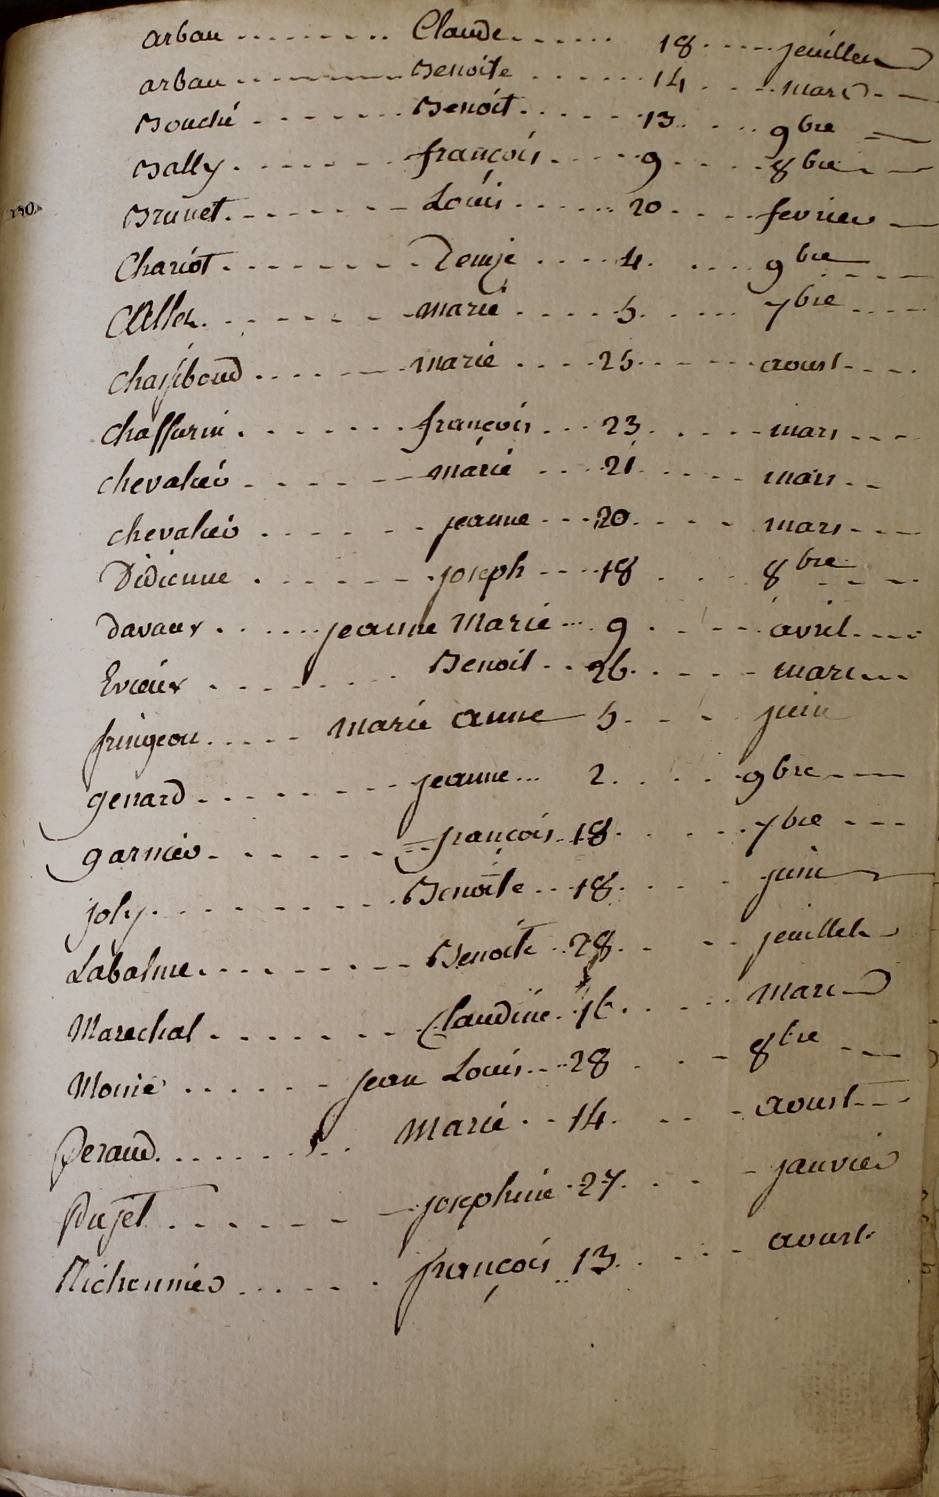 arban Claude 18 jeuillet
arban Benoite 14 mars
Bouché Benoit 13 9bre
Bally françois 9 8bre
Brunet Louis 20 fevrier
Chariot 4 9bre
marie 5 7bre
marie 25 aoust
Chaffurin françois 23 mars
chevalier marie 21 mars
chevalier jeanne 20 mars
Didienne joseph 18 8bre
davaux jeanne Marie 9 avril
Evieux Benoit 26 mars
fringeon marie anne 5 juin
genard jeanne 2 9bre
garnier françois 18 7bre
joly Benoite 18 juin
Labalme Benoite 28 jeuillet
Marechal Claudine 16 mars
Monié jean Louis 28 8bre
Peraud Marie 14 aoust
Pujet josephine 27 janvier
Richonnier françois 13 aoust